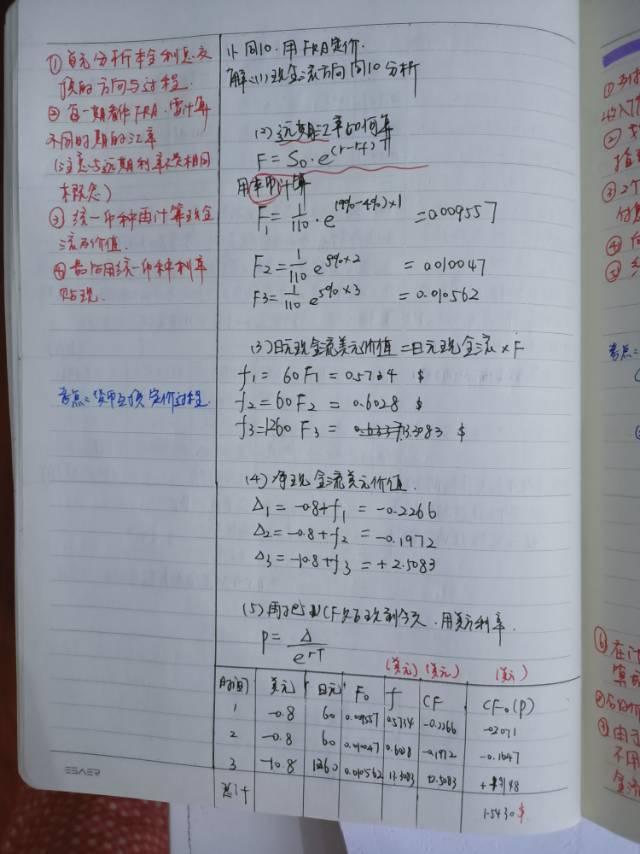 ① 首先分析本金利息交
换的方向与过程.
② 每一期看作FRA.需计算
不同时期的汇率
(注意与远期利率是相同
概念)
③ 统一币种再计算现金
流价值.
④ 最后用统一币种利率
贴现.
考点=货币互换定价过程.
11. 同10.用FRA定价.
解:(1)现金流方向同10分析
(2)远期汇率如何算
F = S₀·e^(r-rf)T
用 计算
F₁ = 1/110 · e^(9%-4%)×1 = 0.009557
F₂ = 1/110 e^5%×2 = 0.010047
F₃ = 1/110 e^5%×3 = 0.010562
(3)日元现金流美元价值=日元现金流×F
f₁ = 60F₁ = 0.5734 $
f₂ = 60F₂ = 0.6028 $
f₃ = 1260 F₃ = 13.3083 $
(4)净现金流美元价值.
Δ₁ = -0.8+f₁ = -0.2266
Δ₂ = -0.8+f₂ = -0.1972
Δ₃ = -10.8+f₃ = +2.5083
(5) CF 现到今天.用美元利率.
P = Δ/e^rT
(美元) (美元) (美元)
时间 美元 日元 F₀ f CF CF₀(P)
1 -0.8 60 0.009557 0.5734 -0.2266 -0.2071
2 -0.8 60 0.010047 0.6028 -0.1972 -0.1647
3 -10.8 1260 0.010562 13.3083 2.5083
总计 1.5430 $